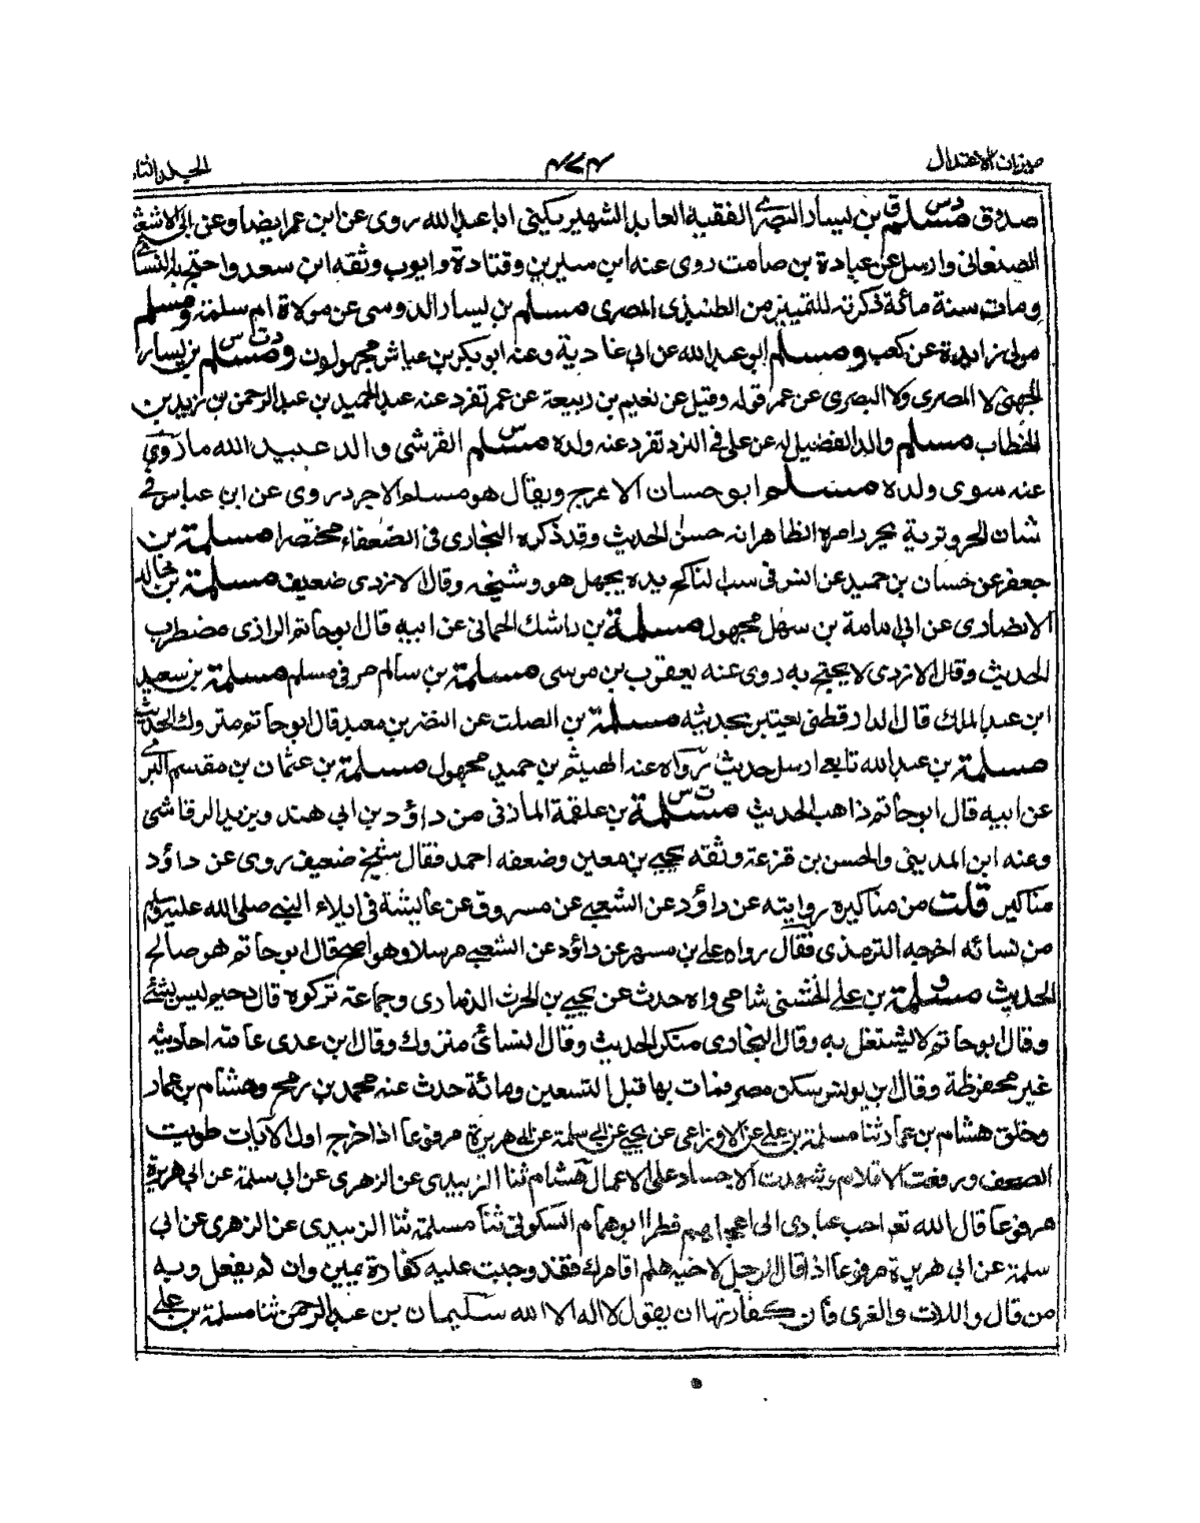 ميزان الاعتدال ٤٧٤ الجلد الثا
صدوق مسلم بن يسار البصري الفقيه العابد الشهير يكنى ابا عبد الله روى عن ابن عمر ايضا وعن ابى الاشعث
الصنعانى وارسل عن عبادة بن صامت روى عنه ابن سيرين وقتادة وايوب وثقه ابن سعد واحتج به النسائى
ومات سنة مائة ذكرته للتمييز من الطنبذى المصرى مسلم بن يسار الدوسى عن مولاة ام سلمة ومسلم
مولى زايدة عن كعب ومسلم ابو عبد الله عن ابى غادية وعنه ابو بكر بن عياش مجهولون ومسلم بن يسار
الجهنى لا المصرى ولا البصرى عن عمر قوله وقيل عن نعيم بن ربيعة عن عمر تفرد عنه عبد الحميد بن عبد الرحمن بن زيد بن
الخطاب مسلم والد الفضيل له عن على فى النرد تفرد عنه ولده مسلم القرشى والد عبيد الله ما روى
عنه سوى ولده مسلم ابو حسان الاعرج ويقال هو مسلم الاجرد روى عن ابن عباس فى
شان الحروترية يحرر امره الظاهر انه حسن الحديث وقد ذكره البخارى فى الضعفاء مختصرا مسلمة بن
جعفر عن حسان بن حميد عن انس فى سب الناكح يده يجهل هو وشيخه وقال الازدى ضعيف مسلمة بن خالد
الانصارى عن ابى امامة بن سهل مجهول مسلمة بن راشد الحمانى عن ابيه قال ابو حاتم الرازى مضطرب
الحديث وقال الازدى لا يحتج به روى عنه يعقوب بن موسى مسلمة بن سالم مر فى مسلم مسلمة بن سعيد
ابن عبد الملك قال الدارقطنى يعتبر بحديثه مسلمة بن الصلت عن النضر بن معبد قال ابو حاتم متروك الحديث
مسلمة بن عبد الله تابعى ارسل حديث رواه عنه الهيثم بن حميد مجهول مسلمة بن عثمان بن مقسم البرى
عن ابيه قال ابو حاتم ذاهب الحديث مسلمة بن علقمة المازنى من داؤد بن ابى هند ويزيد الرقاشى
وعنه ابن المدينى والحسن بن قزعة وثقه يحيى بن معين وضعفه احمد فقال شيخ ضعيف روى عن داؤد
مناكير قلت من مناكيره روايته عن داؤد عن الشعبى عن مسروق عن عايشة فى ايلاء النبى صلى الله عليه وسلم
من نسائه اخرجه الترمذى فقال رواه على بن مسهر عن داؤد عن الشعبى مرسلا وهو اصح قال ابو حاتم هو صالح
الحديث مسلمة بن على الخشنى شامى واه حدث عن يحيى بن الحرث الذمارى وجماعة تركوه قال دحيم ليس بشئ
وقال ابو حاتم لا يشتغل به وقال البخارى منكر الحديث وقال النسائى متروك وقال ابن عدى عامة احاديثه
غير محفوظة وقال ابن يونس سكن مصر فمات بها قبل التسعين ومائة حدث عنه محمد بن رمح وهشام بن عمار
وخلق هشام بن عمار ثنا مسلمة بن على عن الاوزاعى عن يحيى عن ابى سلمة عن ابى هريرة مرفوعا اذا خرج اول الآيات طويت
الصحف ورفعت الاقلام وشهدت الاجساد على الاعمال هشام ثنا الزبيدى عن الزهرى عن ابى سلمة عن ابى هريرة
مرفوعا قال الله تعالى احب عبادى الى اعجلهم فطرا ابو همام السكونى ثنا مسلمة ثنا الزبيدى عن الزهرى عن ابى
سلمة عن ابى هريرة مرفوعا اذا قال الرجل لاخيه هلم اقامرك فقد وجبت عليه كفارة يمين وان لم يفعل وبه
من قال واللات والعزى فان كفارتها ان يقول لا اله الا الله سليمان بن عبد الرحمن ثنا مسلمة بن على